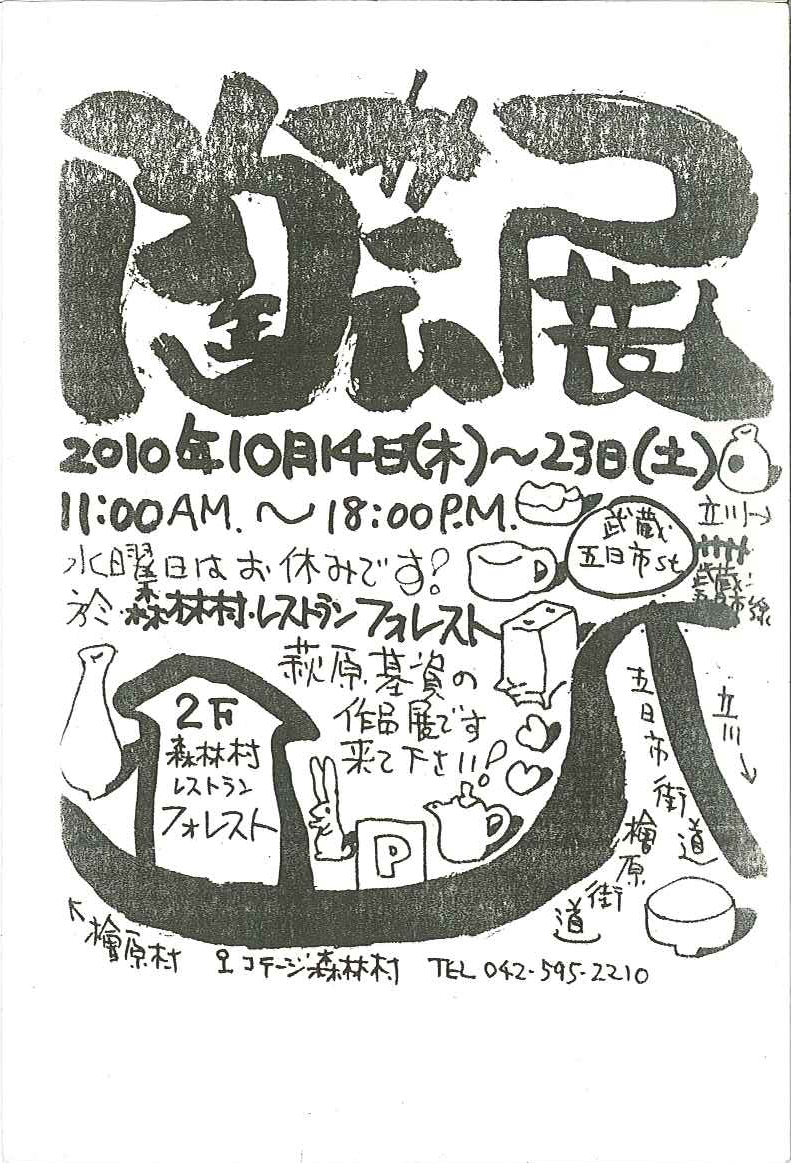 陶芸展
2010年10月14日(木)～23日(土)
11:00AM.～18:00P.M.
水曜日はお休みです!
於 森林村・レストランフォレスト
萩原基資の
作品展です
来て下さい!
武蔵
五日市st
立川→
武蔵五日市線
2F
森林村
レストラン
フォレスト
P
五日市街道
立川
檜原街道
檜原村
コテージ森林村 TEL 042-595-2210